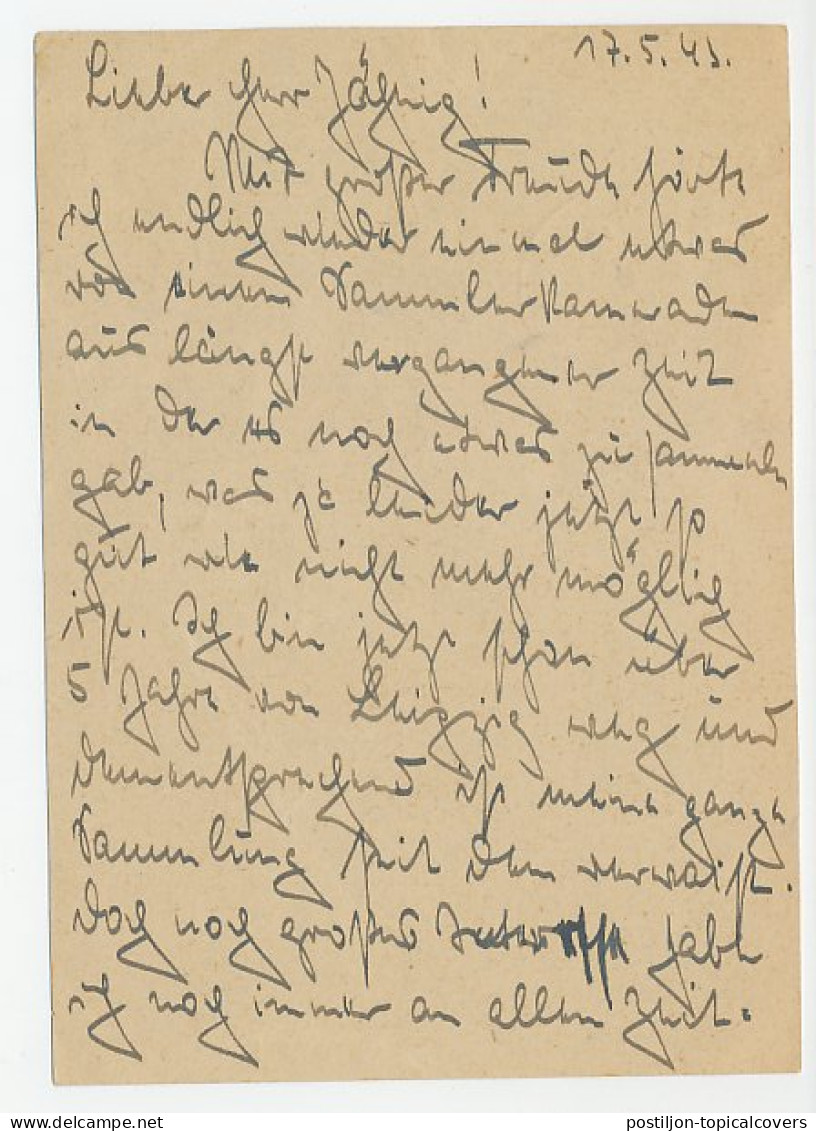 17.5.43.
Lieber Herr Jähnig!
Mit großer Freude hörte
ich endlich wieder einmal etwas
von einem Sammlerkameraden
aus längst vergangener Zeit
in der es noch etwas zu sammeln
gab, was ja leider jetzt so
gut wie nicht mehr möglich
ist. Ich bin jetzt schon über
5 Jahre von Leipzig weg und
dementsprechend ist meine ganze
Sammlung seit dem verwaist.
Doch noch großes Interesse habe
ich noch immer an allen Zeit=
postiljon-topicalcovers